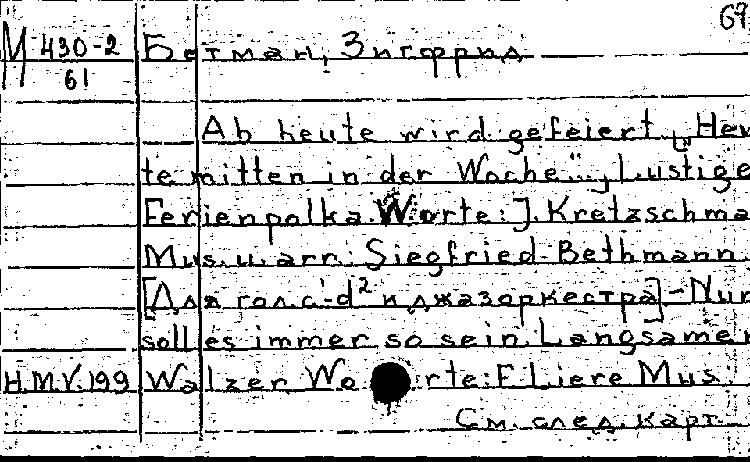 67
М 430-2
61
Бетман, Зигфрид
Ab heute wird gefeiert. „Heu
te mitten in der Woche“., Lustige
Ferienpolka. Worte: J. Kretzschma
Mus. u. arr. Siegfried Bethmann.
[Для гол. c-d² и джазоркестра] - Nun
soll es immer so sein. Langsamer
Н.М.V.199 Walzer Worte: F. Liere Mus.
См. след. карт.